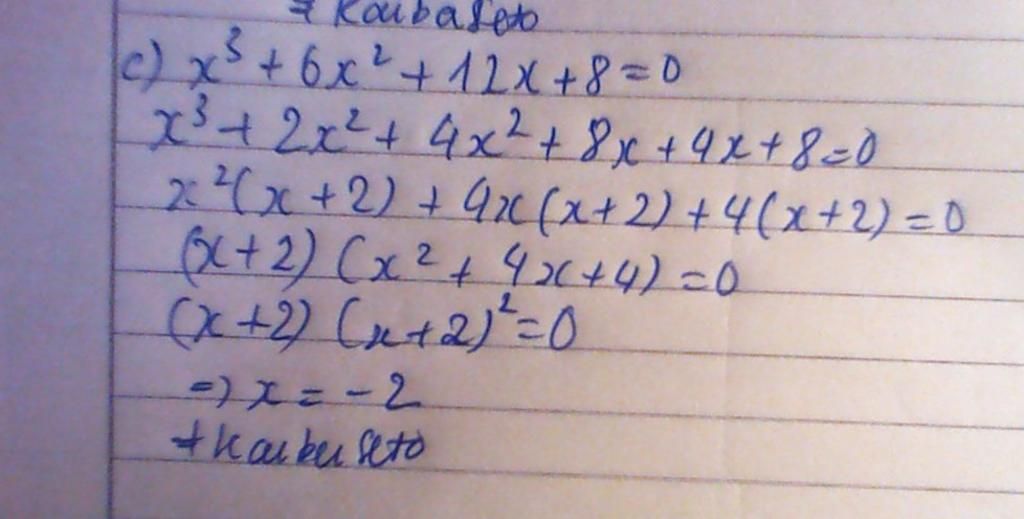 + KaibaSeto
c) x³ + 6x² + 12x + 8 = 0
x³ + 2x² + 4x² + 8x + 4x + 8 = 0
x²(x + 2) + 4x(x + 2) + 4(x + 2) = 0
(x + 2) (x² + 4x + 4) = 0
(x + 2) (x + 2)² = 0
=> x = -2
+ KaibaSeto